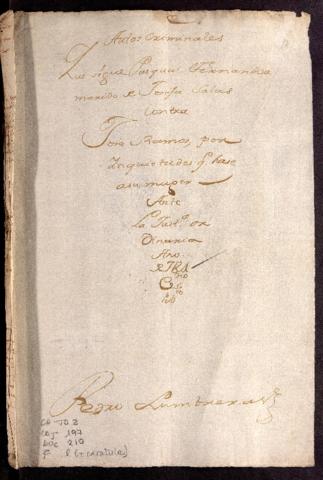 Autos Criminales
Que sigue Pasqual Fernandes
marido de Josefa Salas
contra
Jose Ramos, por
Inquietudes q.e hase
a su muger
Ante
la Just.a or
Dinaria
Año
de 1781
Pedro Lumbreras
CAJ 197
DOC 210
f. 8 (+ caratula)